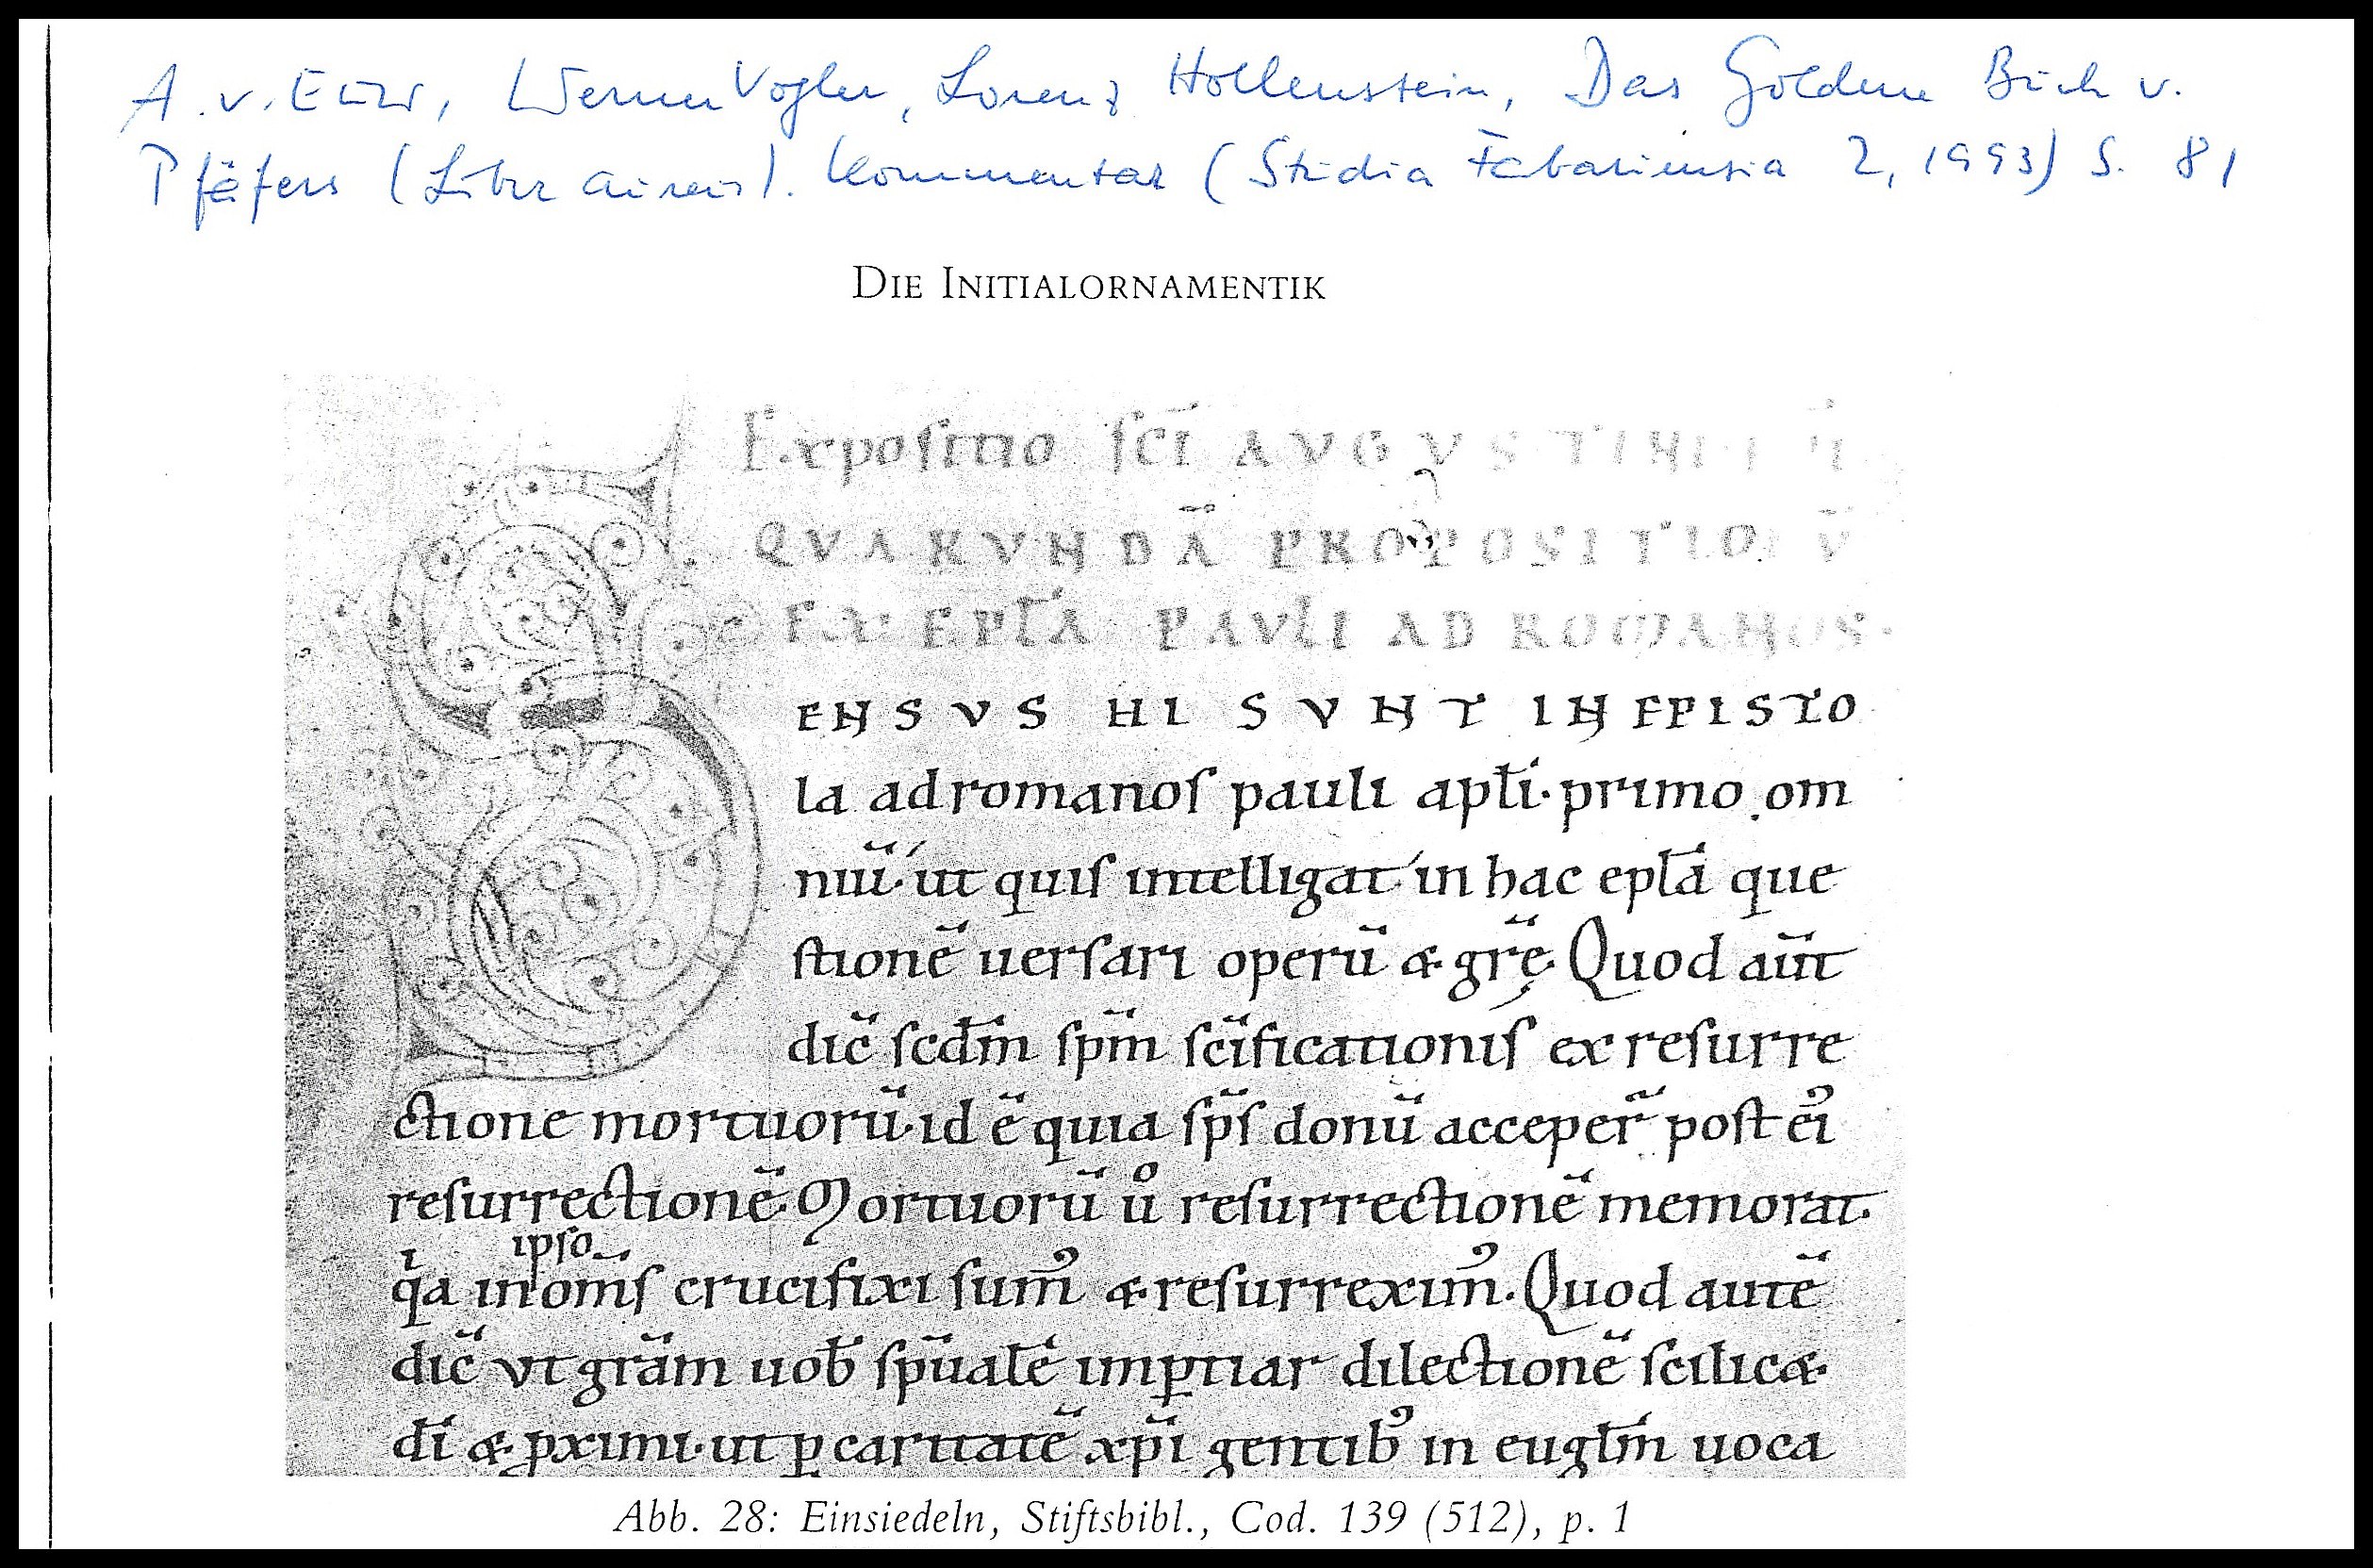 A. v. Euw, Werner Vogler, Lorenz Hollenstein, Das Goldene Buch v.
Pfäfers (Liber aureus). Kommentar (Studia Fabariensia 2, 1993) S. 81
DIE INITIALORNAMENTIK
Expoſitio ſcī AVGVSTINI
QVARVNDĀ PROPOSITIONV̄
EX EPĪA PAVLI AD ROMANOS.
ENSVS HI SVNT IN EPISTO
la ad romanoſ pauli apl̄i· primo om
niū· ut quiſ intelligat in hac epl̄a que
ſtionē uerſari operū & grę̄. Quod aūt
dic̄ ſcdm̄ ſpm̄ ſcīficationiſ ex reſurre
ctione mortuorū· id ē quia ſpſ̄ donū acceper̄ poſt ei᾿
reſurrectionē. Mortuorū uº reſurrectionē memorat.
ipſo
qⁱa in om̄ſ crucifixi ſum᾿ & reſurrexim᾿. Quod autē
dic̄ vt grām uob̄ ſpūalē imꝑtiar dilectionē ſcilic&·
dī & ꝓximi· ut ꝑ caritatē xp̄i gentib᾿ in eugl̄m uoca
Abb. 28: Einsiedeln, Stiftsbibl., Cod. 139 (512), p. 1